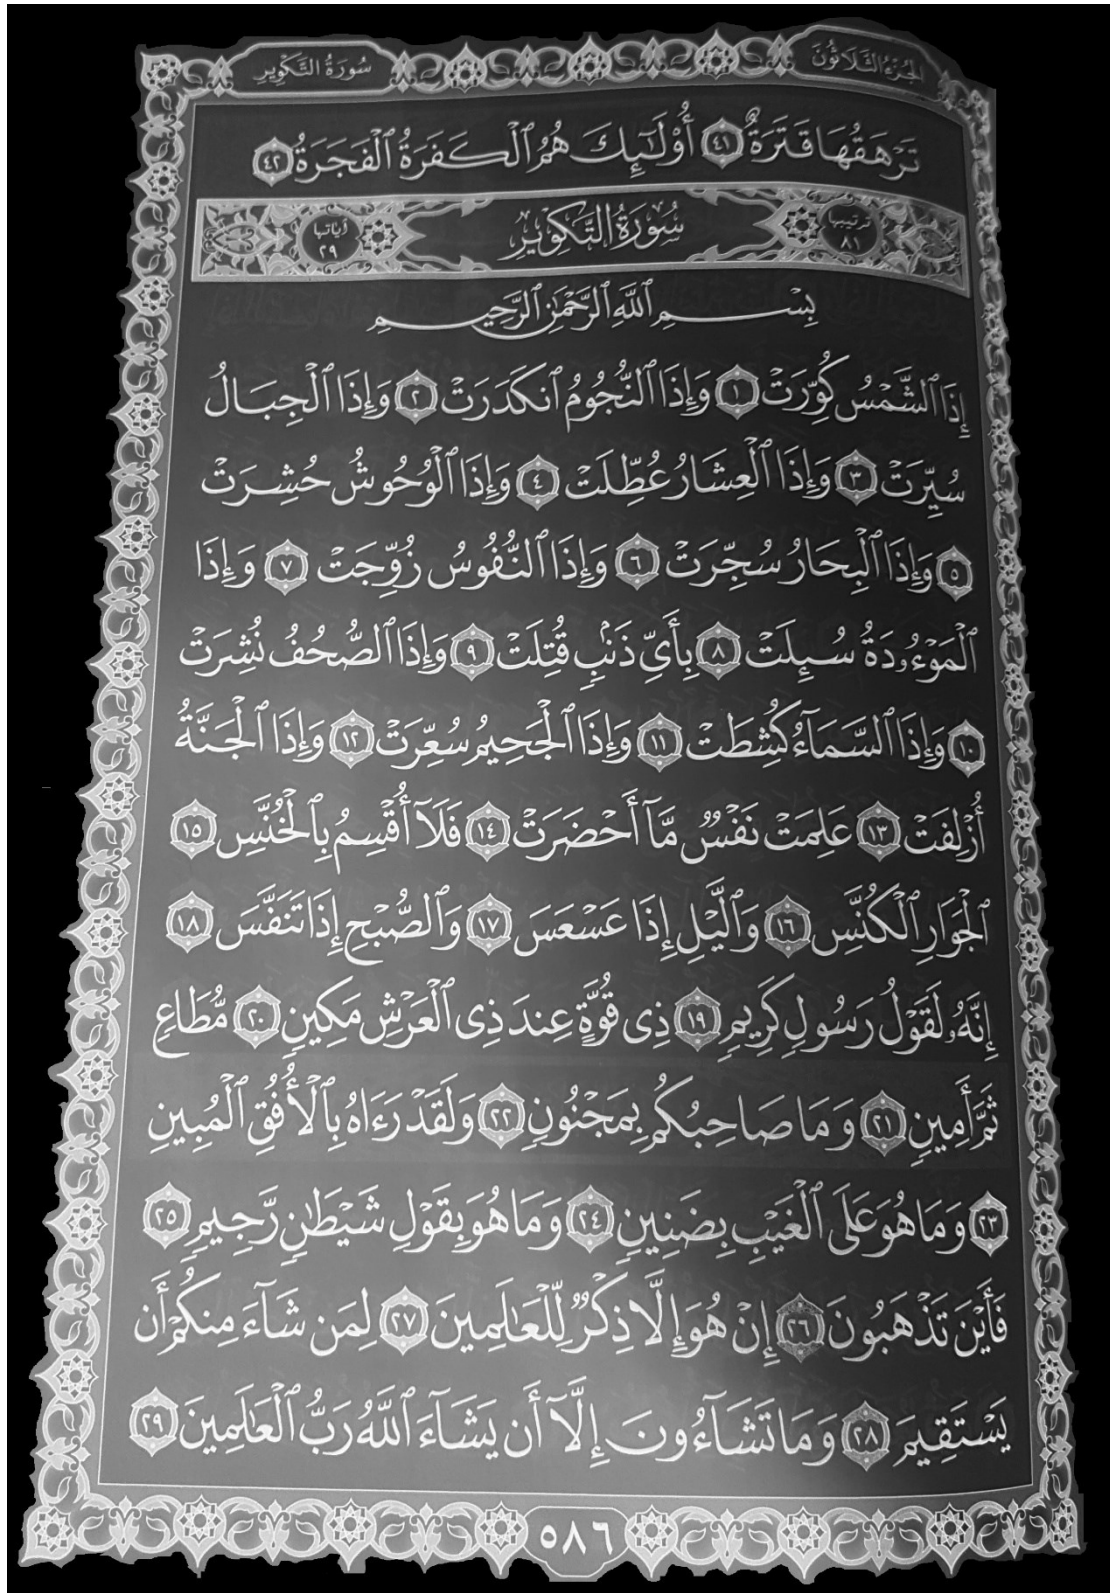 الجزء الثلاثون
سورة التكوير
تَرْهَقُهَا قَتَرَةٌ ٤١ أُوْلَٰٓئِكَ هُمُ ٱلْكَفَرَةُ ٱلْفَجَرَةُ ٤٢
ترتيبها ٨١
سُورَةُ التَّكْوِيرِ
آياتها ٢٩
بِسْمِ ٱللَّهِ ٱلرَّحْمَٰنِ ٱلرَّحِيمِ
إِذَا ٱلشَّمْسُ كُوِّرَتْ ١ وَإِذَا ٱلنُّجُومُ ٱنكَدَرَتْ ٢ وَإِذَا ٱلْجِبَالُ
سُيِّرَتْ ٣ وَإِذَا ٱلْعِشَارُ عُطِّلَتْ ٤ وَإِذَا ٱلْوُحُوشُ حُشِرَتْ
٥ وَإِذَا ٱلْبِحَارُ سُجِّرَتْ ٦ وَإِذَا ٱلنُّفُوسُ زُوِّجَتْ ٧ وَإِذَا
ٱلْمَوْءُۥدَةُ سُئِلَتْ ٨ بِأَىِّ ذَنۢبٍ قُتِلَتْ ٩ وَإِذَا ٱلصُّحُفُ نُشِرَتْ
١٠ وَإِذَا ٱلسَّمَآءُ كُشِطَتْ ١١ وَإِذَا ٱلْجَحِيمُ سُعِّرَتْ ١٢ وَإِذَا ٱلْجَنَّةُ
أُزْلِفَتْ ١٣ عَلِمَتْ نَفْسٌ مَّآ أَحْضَرَتْ ١٤ فَلَآ أُقْسِمُ بِٱلْخُنَّسِ ١٥
ٱلْجَوَارِ ٱلْكُنَّسِ ١٦ وَٱلَّيْلِ إِذَا عَسْعَسَ ١٧ وَٱلصُّبْحِ إِذَا تَنَفَّسَ ١٨
إِنَّهُۥ لَقَوْلُ رَسُولٍ كَرِيمٍ ١٩ ذِى قُوَّةٍ عِندَ ذِى ٱلْعَرْشِ مَكِينٍ ٢٠ مُّطَاعٍ
ثَمَّ أَمِينٍ ٢١ وَمَا صَاحِبُكُم بِمَجْنُونٍ ٢٢ وَلَقَدْ رَءَاهُ بِٱلْأُفُقِ ٱلْمُبِينِ
٢٣ وَمَا هُوَ عَلَى ٱلْغَيْبِ بِضَنِينٍ ٢٤ وَمَا هُوَ بِقَوْلِ شَيْطَٰنٍ رَّجِيمٍ ٢٥
فَأَيْنَ تَذْهَبُونَ ٢٦ إِنْ هُوَ إِلَّا ذِكْرٌ لِّلْعَٰلَمِينَ ٢٧ لِمَن شَآءَ مِنكُمْ أَن
يَسْتَقِيمَ ٢٨ وَمَا تَشَآءُونَ إِلَّآ أَن يَشَآءَ ٱللَّهُ رَبُّ ٱلْعَٰلَمِينَ ٢٩
٥٨٦